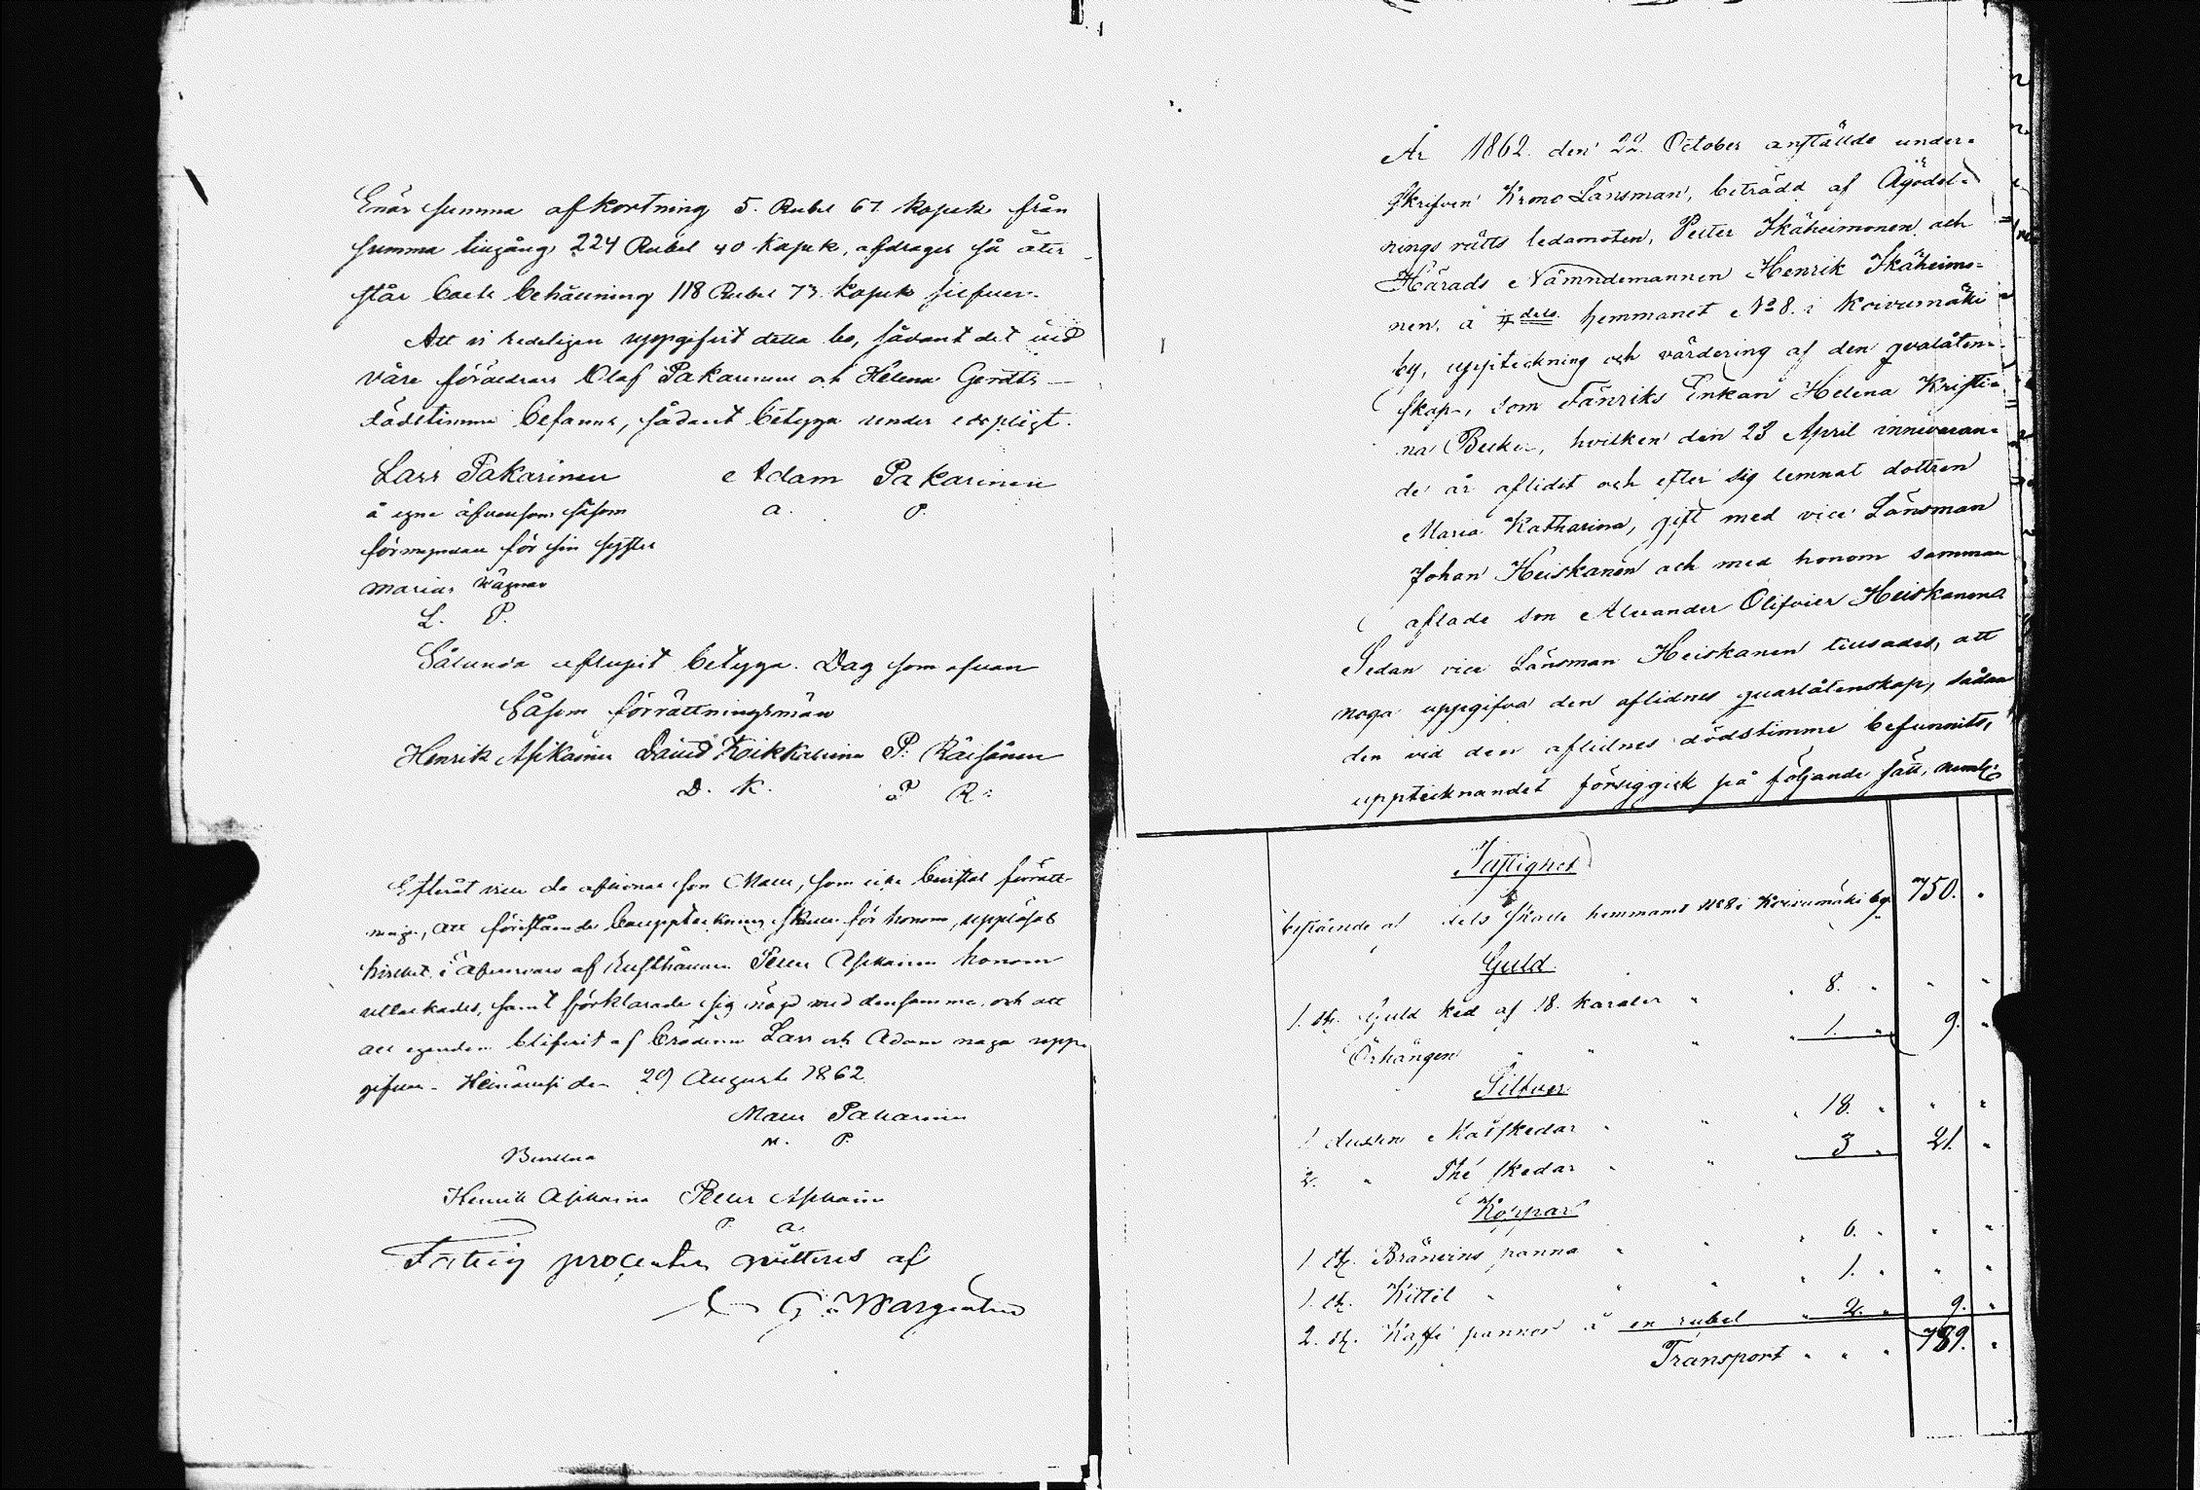 Enär summa afkortning 5. Rubel 67. kopek från
summa tillgång 224 Rubel 40 kopek, afdrages så åter
står boets behållning 118 Rubel 73. kopek silfver.
Att vi redeligen uppgifvit detta bo, sådant det vid
våra föräldrars Olof Pakarinens och Helena
dödstimma befanns, sådant betyga under edspligt.
Lars Pakarinen Adam Pakarinen
å egna äfvensom såsom a. P.
förmyndare för sin syster
Marias vägnar
L. P.
Sålunda aflupit betyga. Dag som ofvan
Såsom förrättningsmän
Henrik Asikainen David P. Räisänen
D. K. P R.
Efteråt ville de aflidnas son Maur, som icke bevistat förrätt-
ning, att förestående bouppteckning skulle för honom uppläsas
hvilket af Petter Asikainen honom
samt förklarade sig nöjd med densamma och att
att egendom blifvit af bröderna Lars och Adam noga upp-
gifven. den 29 Augusti 1862
Maur Pakarinen
M. P.
Bevittna
Henrik Asikainen Petter Asikainen
P. a.
Fattig procenten qvitteras af
G. Wargentin
År 1862 den 22 October anställde under-
skrifven Krono Länsman, biträdd af Ägodel-
nings rätts ledamoten, Petter Ikäheimonen och
Härads Nämndemannen Henrik Ikäheimo-
nen, å dels hemmanet No 8. i Koivumäki
by, uppteckning och värdering af den qvarlåten-
skap, som Fänriks Enkan Helena Kristi-
na Becker, hvilken den 23 April innevaran-
de år aflidit och efter sig lemnat dottren
Maria Katharina, gift med vice Länsman
Johan Heiskanen och med honom samman
aflade son Alexander Olifvier Heiskanen.
Sedan vice Länsman Heiskanen tillsades, att
noga uppgifva den aflidnes quarlåtenskap, sådan
den vid den aflidnes dödstimme befunnits,
upptecknandet försiggick på följande sätt, neml:
Fastighet
bestående af dels Skatte hemmanet No 8 i Koivumäki by 750.
Guld
1. st. Guld ked af 18. karater " 8. " "
Örhängen " " " 1. " 9. "
Silfver
1 dussin Matskedar " " 18. " " "
2. " Thé skedar " " 3 " 21. "
Koppar
1 st. Bränvins panna " " 6. " " "
1. st. Kittel " " " 1. " " "
2. st. Kaffe pannor à en rubel " 2. " 9. "
Transport " " " 789. "